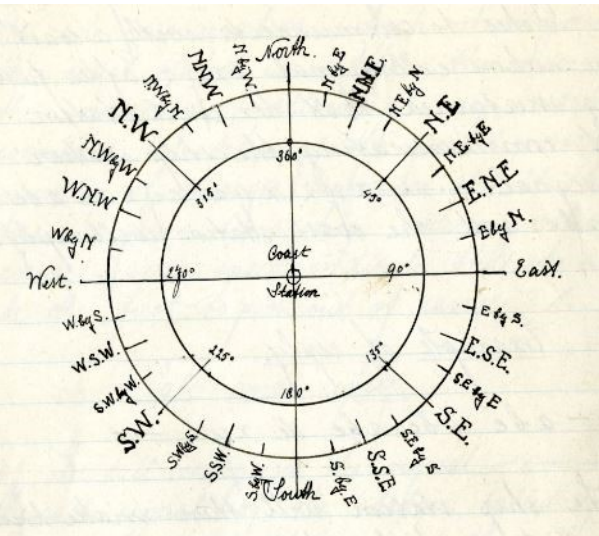 North.
N by E
NNE
N.E by N
N.E
N.E. by E
E.NE
E by N.
East.
E by S.
E.S.E.
S.E by E
S.E.
S.E by S
S.S.E
S by E
South.
S by W.
S.S.W.
S.W by S.
S.W.
S.W. by W.
W.S.W.
W. by S.
West.
W by N
WNW
N.W by W
N.W
N.W by N
NNW
N by W.
360°
45°
90°
135°
180°
225°
270°
315°
Coast
Station